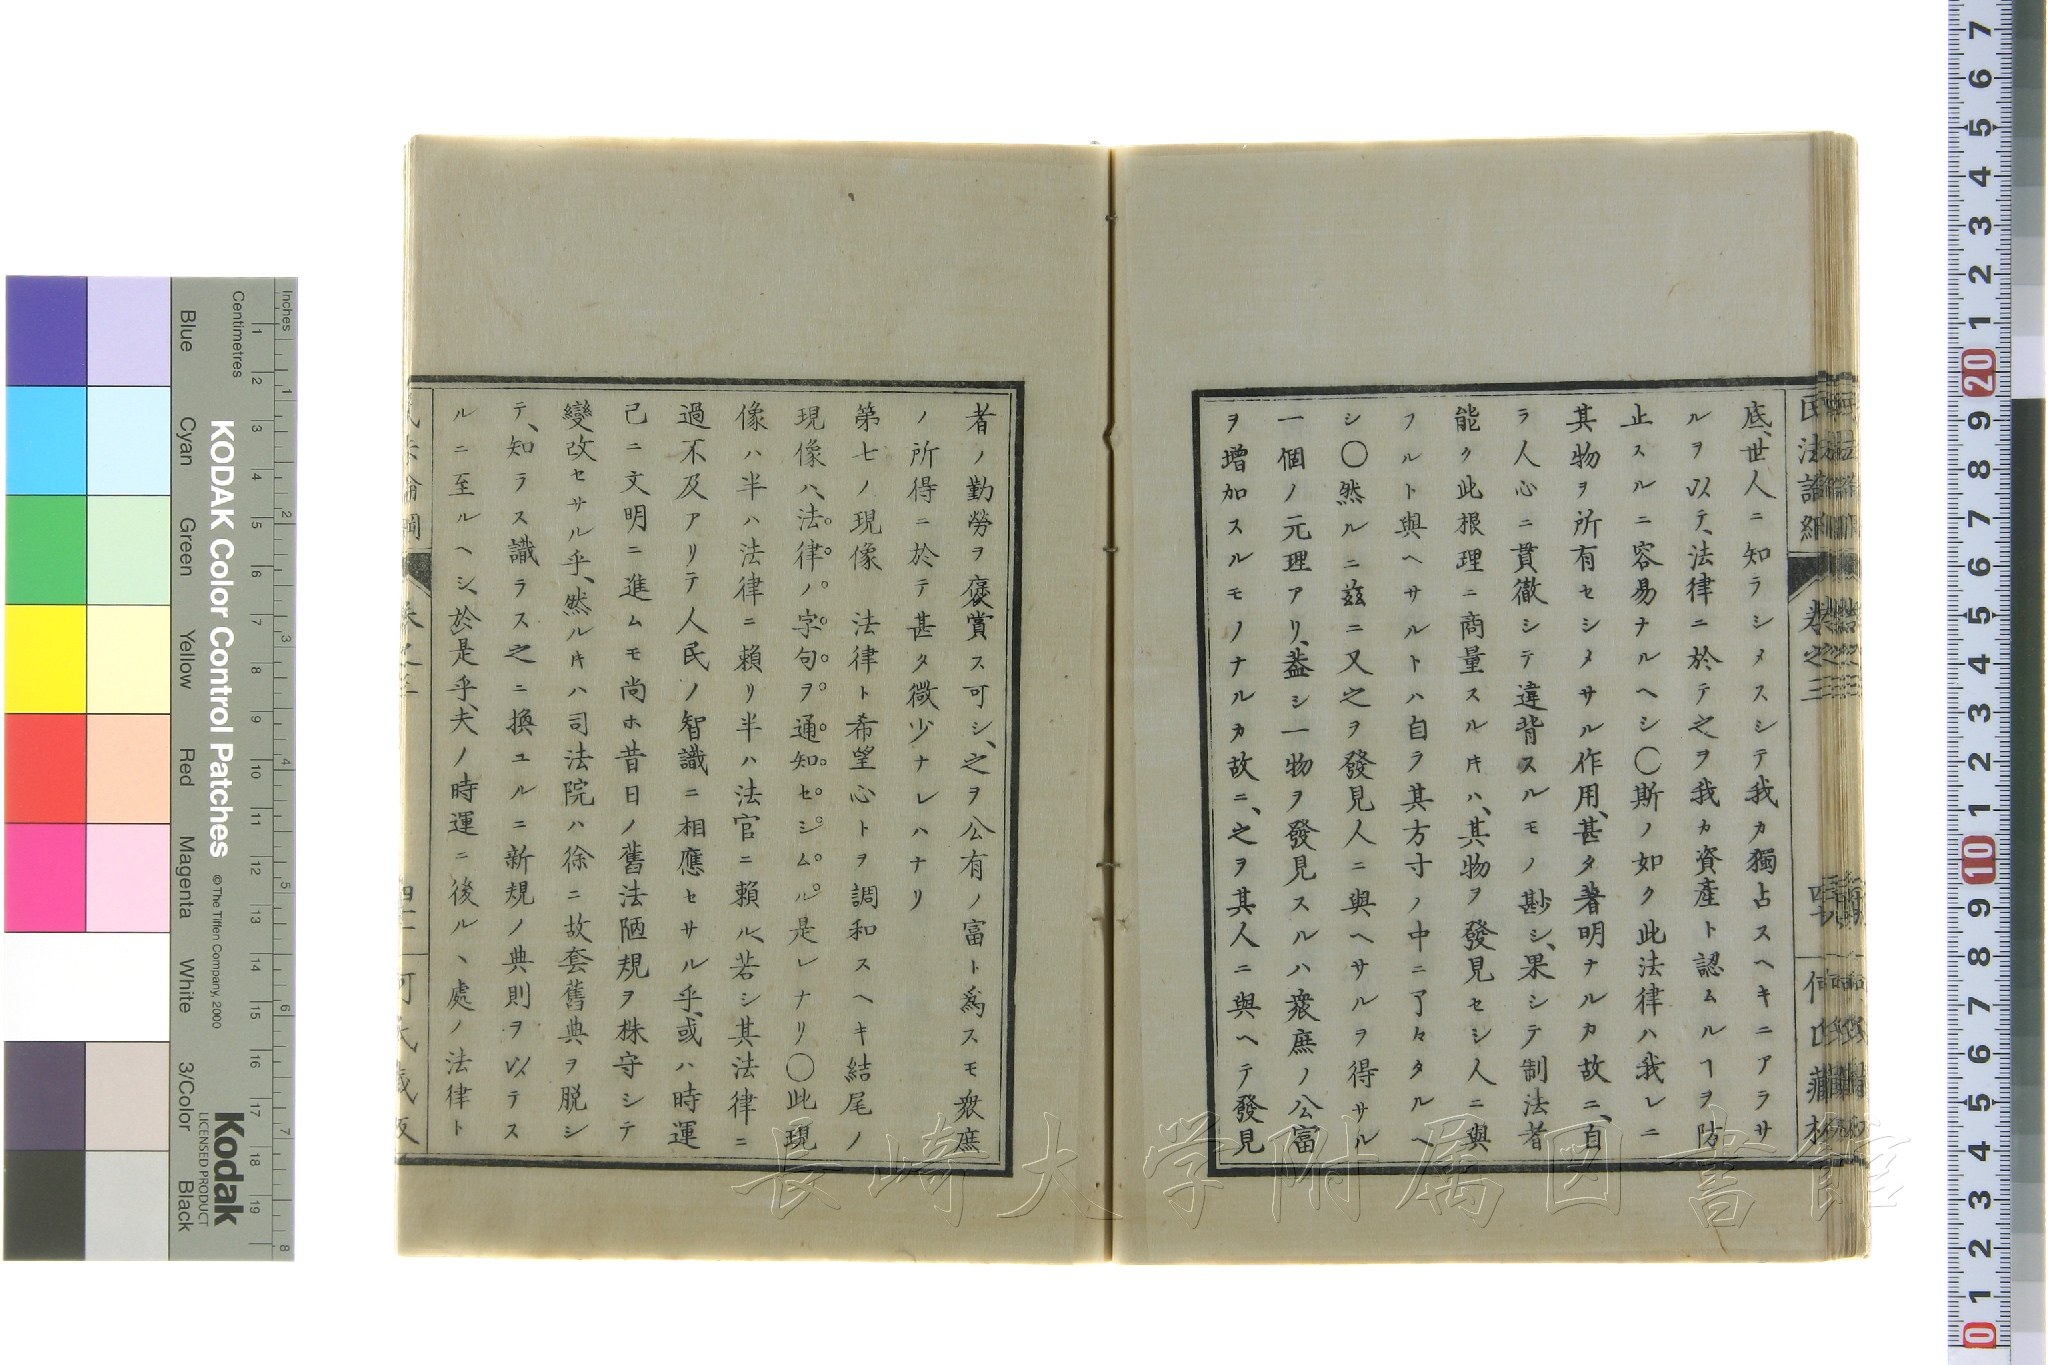 底、世人ニ知ラシメスシテ我カ獨占スヘキニアラサ
ルヲ以テ、法律ニ於テ之ヲ我カ資産ト認ムルヿヲ防
止スルニ容易ナルヘシ〇斯ノ如ク此法律ハ我レニ
其物ヲ所有セシメサル作用、甚タ著明ナルカ故ニ、自
ラ人心ニ貫徹シテ違背スルモノ尠シ、果シテ制法者
能ク此根理ニ商量スルキハ、其物ヲ發見セシ人ニ與
フルト與ヘサルトハ自ラ其方寸ノ中ニ了々タルヘ
シ〇然ルニ茲ニ又之ヲ發見人ニ與ヘサルヲ得サル
一個ノ元理アリ、蓋シ一物ヲ發見スルハ衆庶ノ公富
ヲ增加スルモノナルカ故ニ、之ヲ其人ニ與ヘテ發見
者ノ勤勞ヲ褒賞ス可シ、之ヲ公有ノ富ト爲スモ衆庶
ノ所得ニ於テ甚タ微少ナレハナリ
第七ノ現像　法律ト希望心トヲ調和スヘキ結尾ノ
現像ハ、法律ノ字句ヲ通知セシムル是レナリ〇此現
像ハ半ハ法律ニ賴リ半ハ法官ニ賴ル、若シ其法律ニ
過不及アリテ人民ノ智識ニ相應セサル乎、或ハ時運
已ニ文明ニ進ムモ尚ホ昔日ノ舊法陋規ヲ株守シテ
變改セサル乎、然ルキハ司法院ハ徐ニ故套舊典ヲ脱シ
テ、知ラス識ラス之ニ換ユルニ新規ノ典則ヲ以テス
ルニ至ルヘシ、於是乎、夫ノ時運ニ後ルヽ處ノ法律ト
卷之三
KODAK Color Control Patches
© The Tiffen Company, 2000
Kodak
LICENSED PRODUCT
Inches
Centimetres
Blue
Cyan
Green
Yellow
Red
Magenta
White
3/Color
Black
長崎大学附属図書館